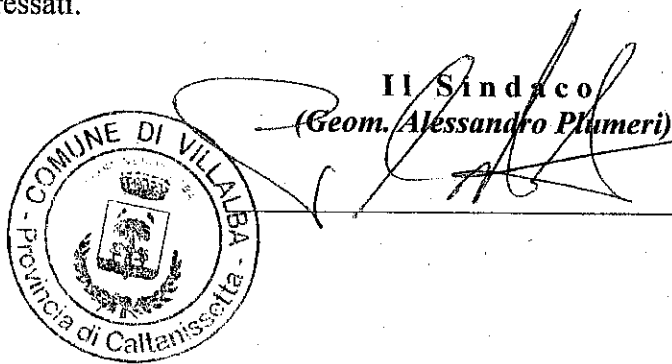 ressati.
Il Sindaco
(Geom. Alessandro Plumeri)
COMUNE DI VILLALBA
- Provincia di Caltanissetta -